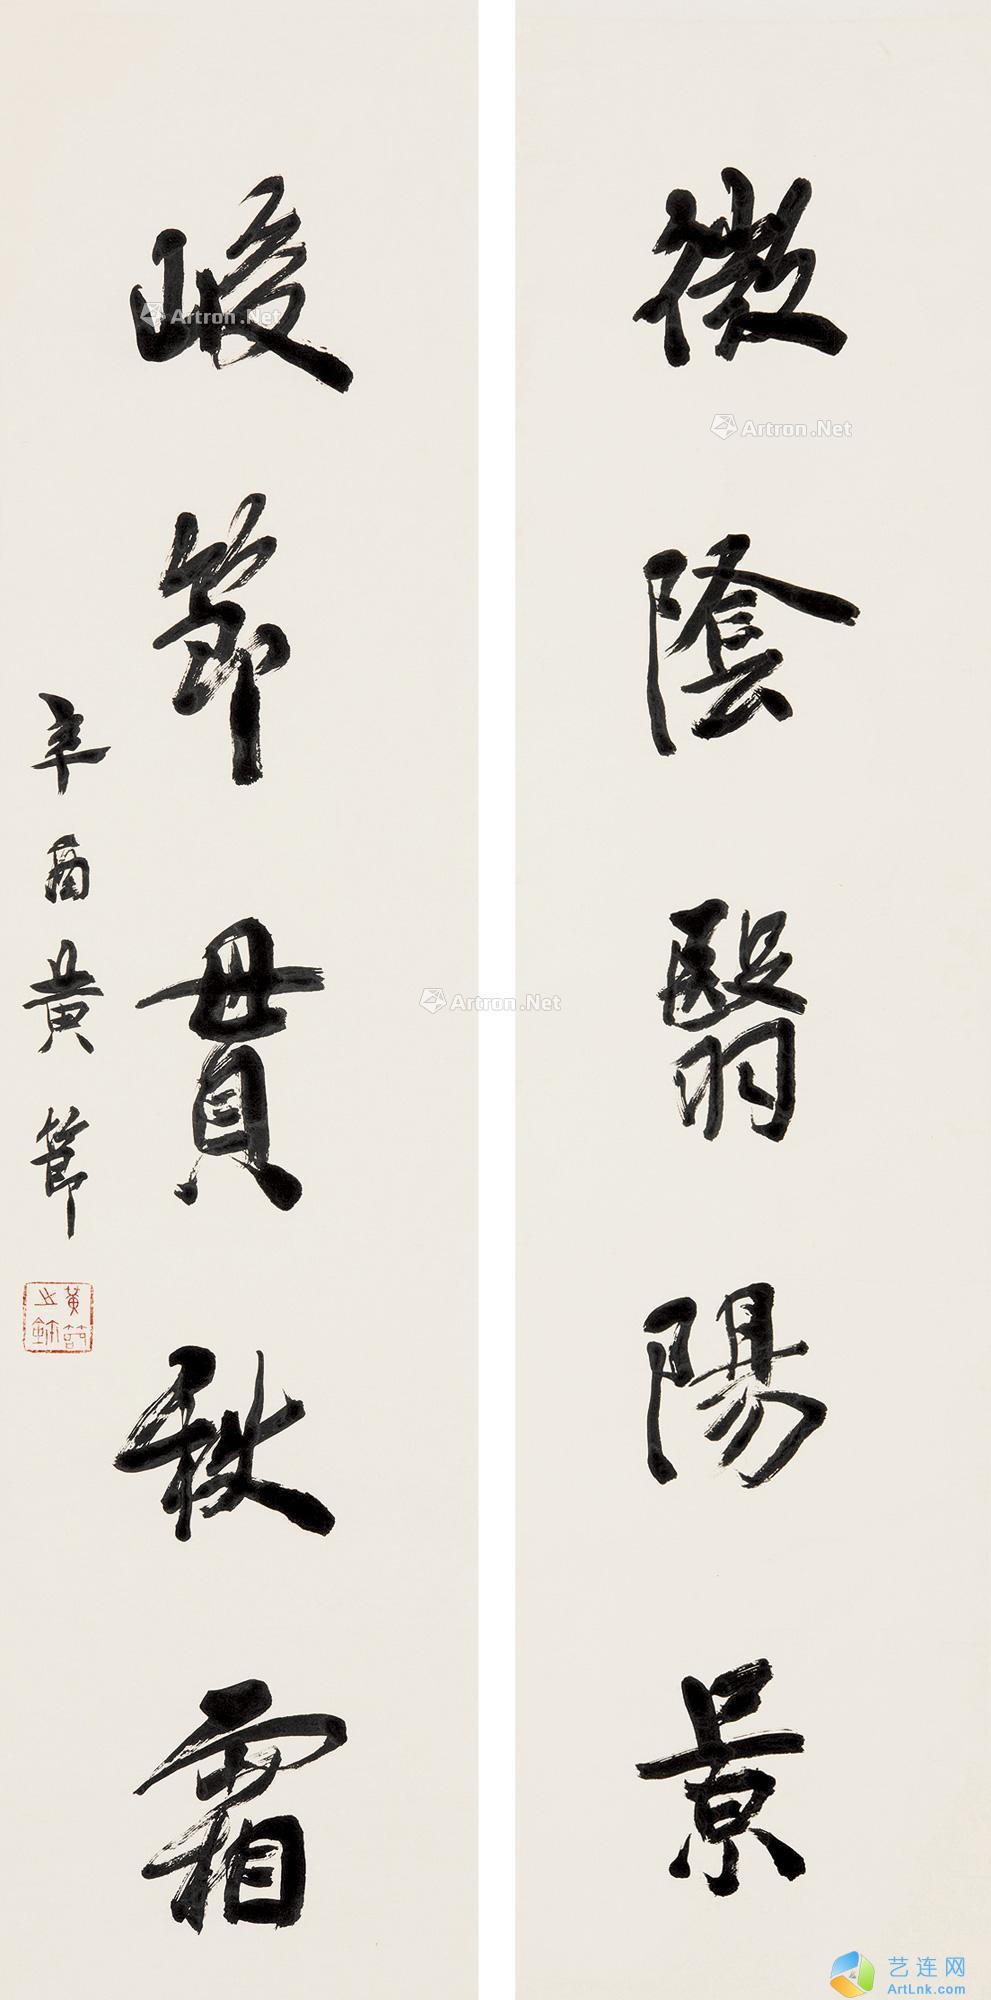 微陰翳陽景
峻節貫秋霜
辛酉黃節
黃節之鉨
Artron.Net
Artron.Net
Artron.Net
艺连网
ArtLnk.com